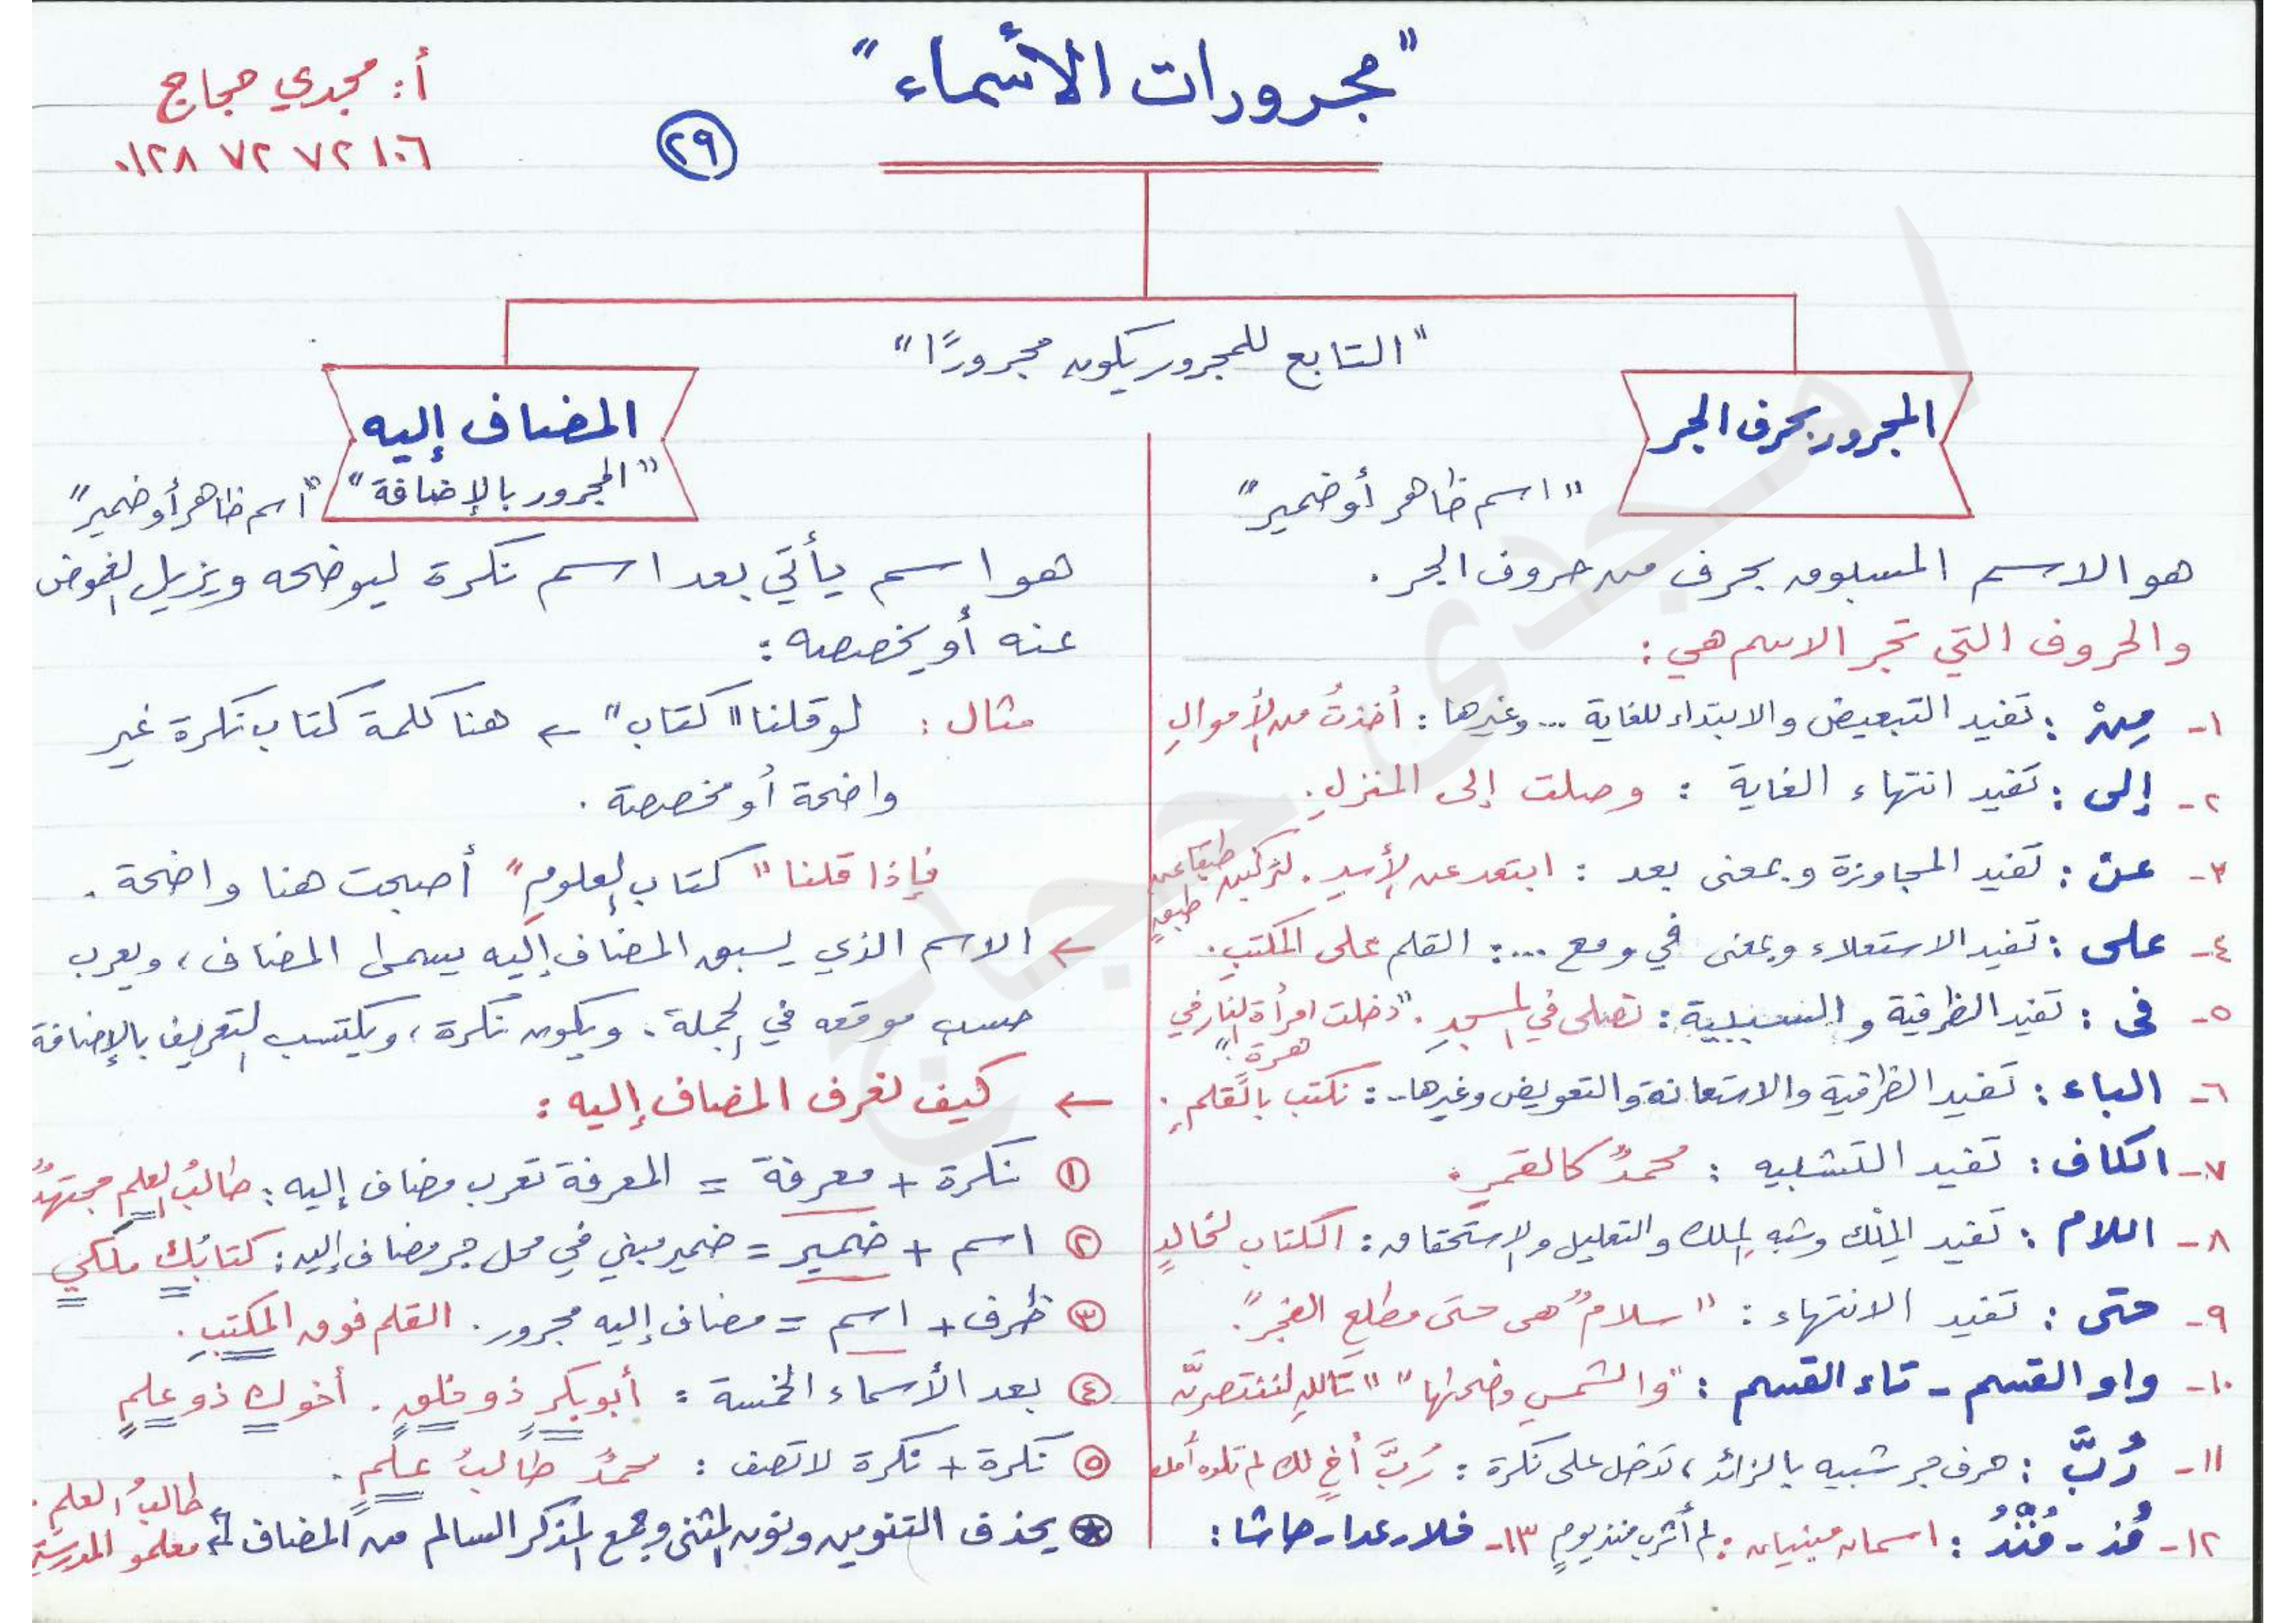 "مجرورات الأسماء"
أ: مجدي حجاج
٠١٢٨ ٧٢ ٧٢ ١٠٦
٢٩
"التابع للمجرور يكون مجرورًا"
المجرور بحرف الجر
"اسم ظاهر أو ضمير"
هو الاسم المسبوق بحرف من حروف الجر.
والحروف التي تجر الاسم هي:
١- مِنْ: تفيد التبعيض والابتداء للغاية ... وغيرها: أخذتُ من الأموالِ
٢- إلى: تفيد انتهاء الغاية: وصلت إلى المنزلِ.
٣- عن: تفيد المجاوزة وبمعنى بعد: ابتعد عن الأسدِ. لتركبن طبقا عن
طبقٍ
٤- على: تفيد الاستعلاء وبمعنى في ومع ....: القلم على المكتبِ.
٥- في: تفيد الظرفية والسببية: تصلى في المسجدِ. "دخلت امرأة النار في
هرة."
٦- الباء: تفيد الظرفية والاستعانة والتعويض وغيرها..: نكتب بالقلمِ.
٧- الكاف: تفيد التشبيه: محمدٌ كالقمرِ.
٨- اللام: تفيد المِلْك وشبه الملك والتعليل والاستحقاق: الكتاب لخالدٍ
٩- حتى: تفيد الانتهاء: "سلامٌ هى حتى مطلعِ الفجر".
١٠- واو القسم - تاء القسم: "والشمسِ وضحاها" "تاللهِ لننتصرنَّ
١١- رُبَّ: حرف جر شبيه بالزائد، تدخل على نكرة: رُبَّ أخٍ لك لم تلده أمك
١٢- مُذ - مُنْذُ: اسمان مبنيان: لم أشرب منذ يومٍ ١٣- خلا - عدا - حاشا:
المضاف إليه
"المجرور بالإضافة"
"اسم ظاهر أو ضمير"
هو اسم يأتي بعد اسم نكرة ليوضحه ويزيل الغموض
عنه أو يخصصه:
مثال: لو قلنا "كتاب" ← هنا كلمة كتاب نكرة غير
واضحة أو مخصصة.
فإذا قلنا "كتاب العلومِ" أصبحت هنا واضحة.
← الاسم الذي يسبق المضاف إليه يسمى المضاف، ويعرب
حسب موقعه في الجملة. ويكون نكرة، ويكتسب التعريف بالإضافة
← كيف نعرف المضاف إليه:
١ نكرة + معرفة = المعرفة تعرب مضاف إليه: طالبُ العلمِ مجتهدٌ
٢ اسم + ضمير = ضمير مبني في محل جر مضاف إليه: كتابُك ملكي
٣ ظرف + اسم = مضاف إليه مجرور. القلم فوق المكتبِ.
٤ بعد الأسماء الخمسة: أبو بكرٍ ذو خلقٍ. أخوك ذو علمٍ
٥ نكرة + نكرة لا تصف: محمدٌ طالبُ علمٍ.
يحذف التنوين ونون المثنى وجمع المذكر السالم من المضاف
طالبُ العلمِ.
معلمو المدرسةِ
مجدى حجاج